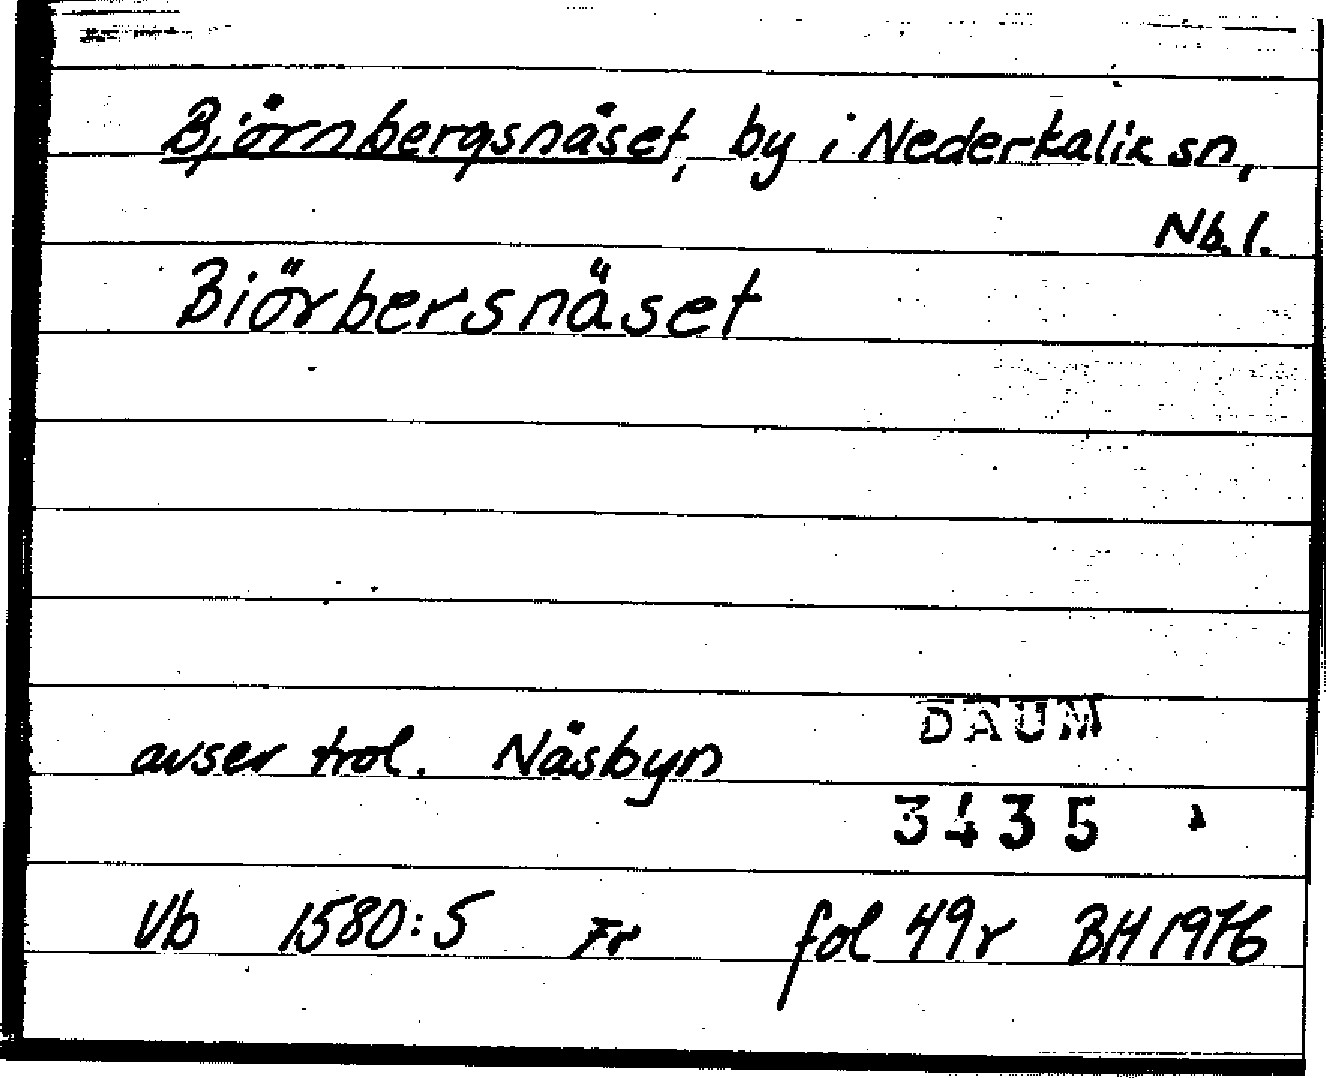 Björnbergsnäset, by i Nederkalix sn,
Nb. l.
Biörbersnäset
DAUM
avser trol. Näsbyn
3435
Vb 1580:5 Fr fol 49r BH 1976